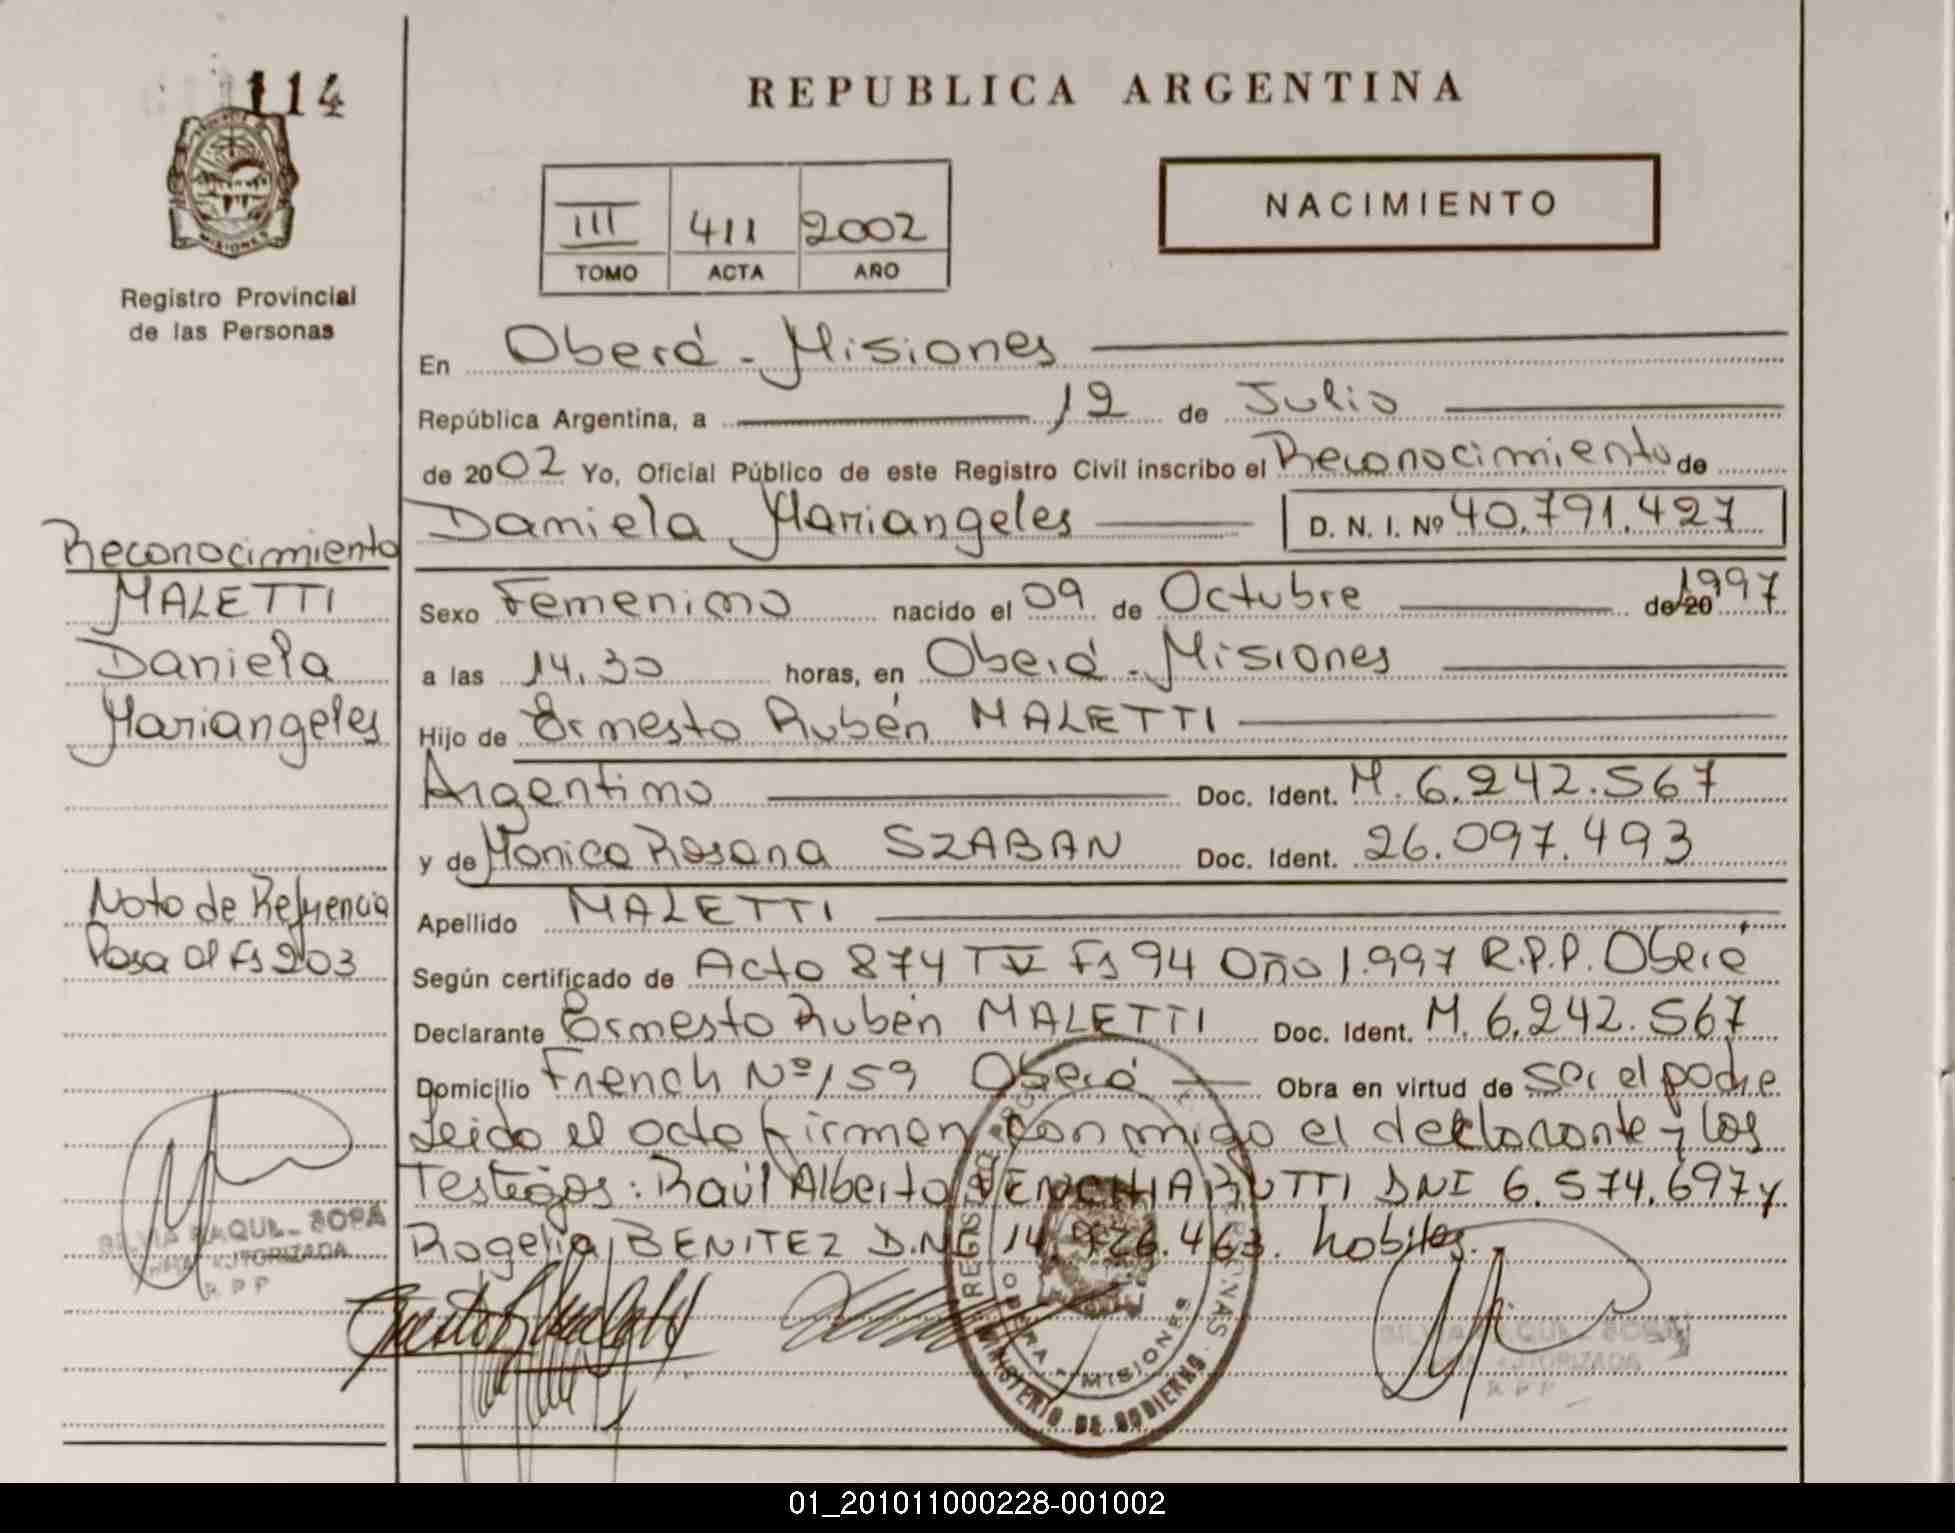 114
MISIONES
Registro Provincial
de las Personas
REPUBLICA ARGENTINA
III 411 2002
TOMO ACTA AÑO
NACIMIENTO
En Oberá - Misiones
República Argentina, a 12 de Julio
de 2002 Yo, Oficial Público de este Registro Civil inscribo el Reconocimiento de
Daniela Mariangeles D. N. I. Nº 40.791.427
Sexo Femenino nacido el 09 de Octubre de 20 1997
a las 14.30 horas, en Oberá - Misiones
Hijo de Ernesto Rubén MALETTI
Argentino Doc. Ident. M. 6.242.567
y de Monica Rosana SZABAN Doc. Ident. 26.097.493
Apellido MALETTI
Según certificado de Acta 874 T IV Fs 94 Año 1.997 R.P.P. Oberá
Declarante Ernesto Rubén MALETTI Doc. Ident. M. 6.242.567
Domicilio French Nº 159 Oberá Obra en virtud de ser el padre
Leido el acta firman conmigo el declarante y los
Testigos: Raúl Alberto VENCHIARUTTI DNI 6.574.697 y
Rogelia BENITEZ D.N.I 14. .463. habiles.
Reconocimiento
MALETTI
Daniela
Mariangeles
Nota de Refuencia
Pasa al Fs 203
SILVIA RAQUEL SOSA
AUTORIZADA
R P P
REGISTRO PERSONAS
OBERA - MISIONES
MINISTERIO DE GOBIERNO
SILVIA RAQUEL SOSA
AUTORIZADA
R P P
01_201011000228-001002